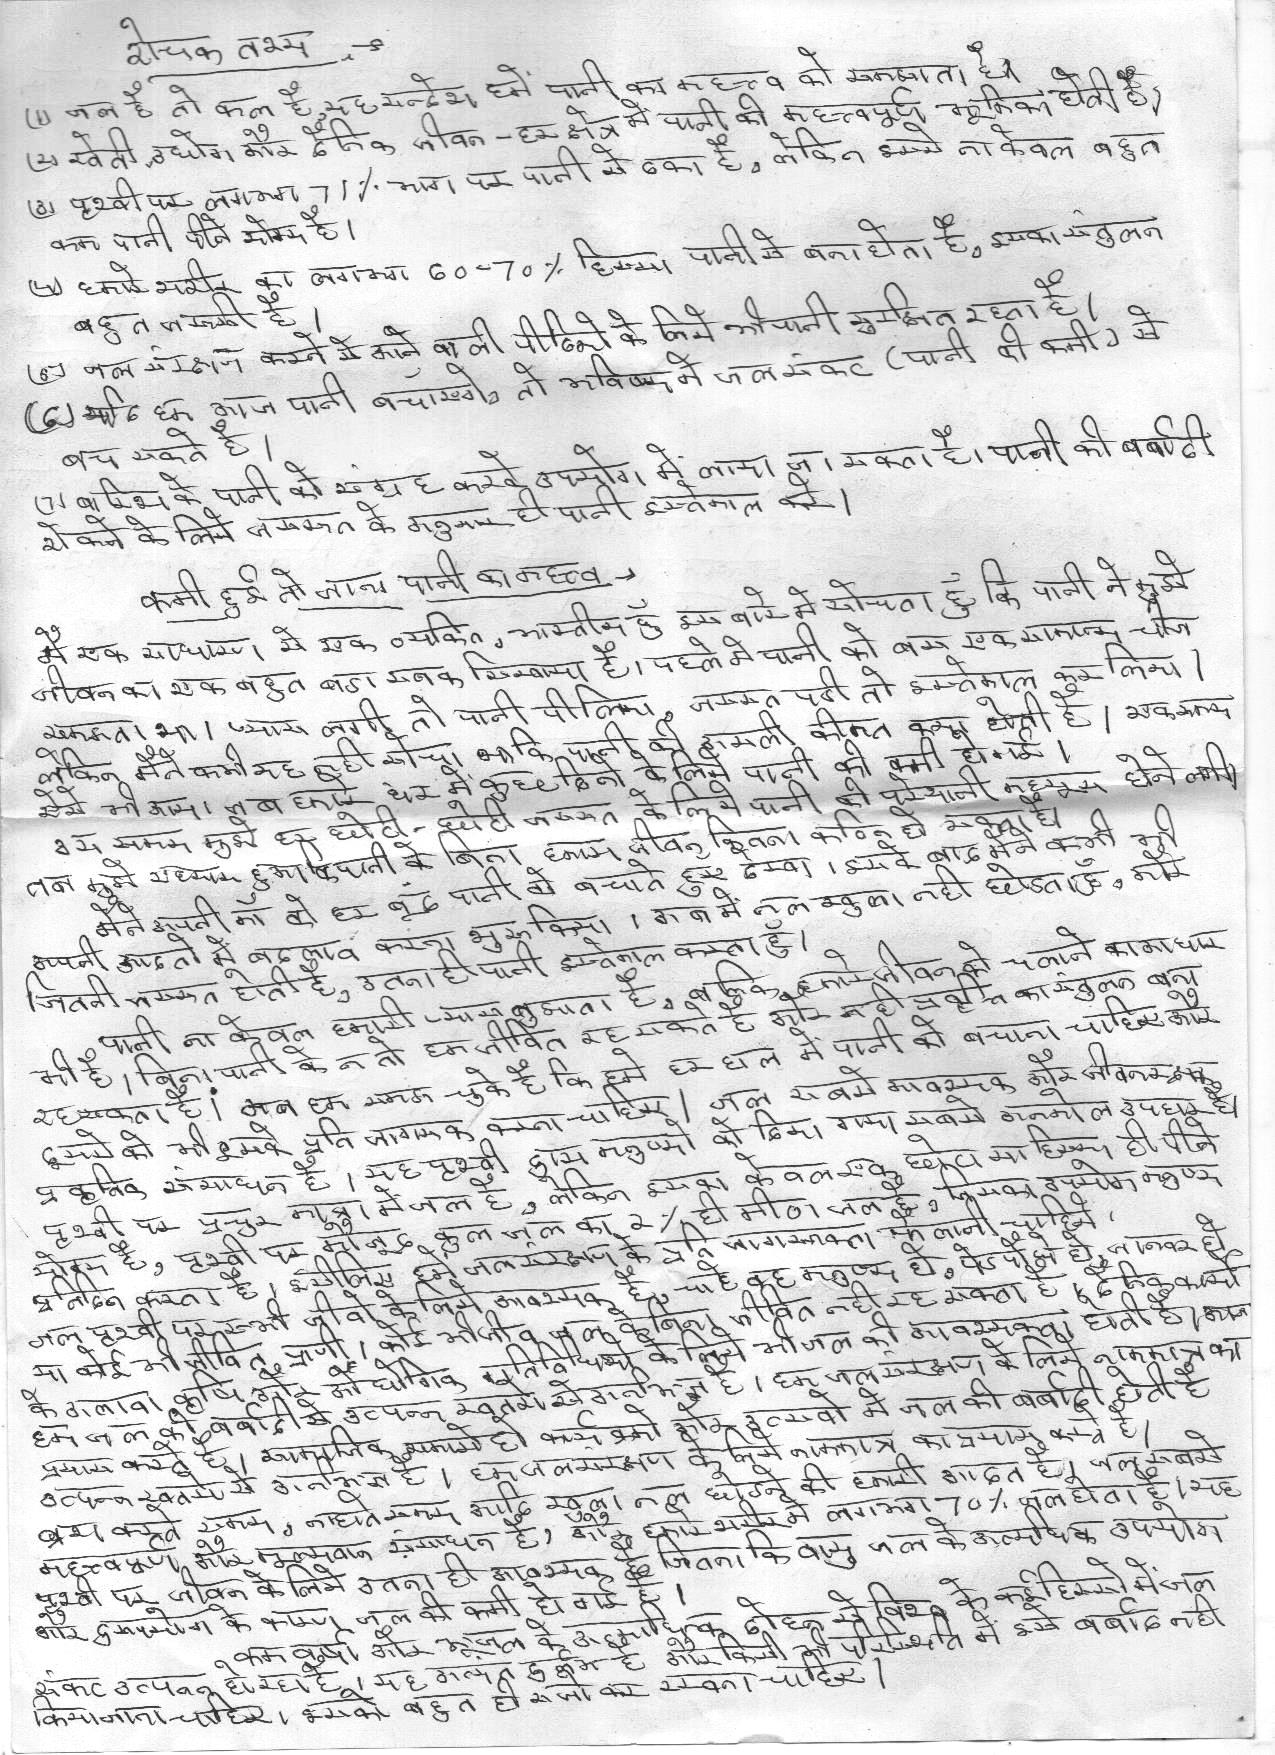 रोचक तथ्य :→
(1) जल है तो कल है, यह सन्देश हमें पानी का महत्त्व को समझाता है।
(2) खेती, उद्योग और दैनिक जीवन - हर क्षेत्र में पानी की महत्त्वपूर्ण भूमिका होती है।
(3) पृथ्वी पर लगभग 71% भाग पर पानी से ढका है, लेकिन इसमे ना केवल बहुत
कम पानी पीने योग्य है।
(4) हमारे शरीर का लगभग 60-70% हिस्सा पानी से बना होता है, इसका संतुलन
बहुत जरूरी है।
(5) जल संरक्षण करने से आने वाली पीढियो के लिये भी पानी सुरक्षित रहता है।
(6) यदि हम आज पानी बचाएगे, तो भविष्य में जल संकट (पानी की कमी) से
बच सकते है।
(7) बारिश के पानी को संग्रह करके उपयोग में लाया जा सकता है। पानी की बर्बादी
रोकने के लिये जरूरत के अनुसार ही पानी इस्तेमाल करे।
कमी हुई तो जाना पानी का महत्त्व →
मैं एक साधारण से एक व्यक्ति, भारतीय हूँ इस बारे मे सोचता हुँ कि पानी ने मुझे
जीवन का एक बहुत बडा सबक सिखाया है। पहले मे पानी को बस एक सामान्य चीज
समझता था। प्यास लगी तो पानी पी लिया, जरूरत पडी तो इस्तेमाल कर लिया।
लेकिन मैंने कभी यह नही सोचा था कि पानी की असली कीमत क्या होती है। एक समय
ऐसे भी आया जब हमारे घर में कुछ दिनो के लिये पानी की कमी हो गई।
उस समय मुझे हर छोटी-छोटी जरूरत के लिये पानी की परेशानी महसूस होने लगी।
तब मुझे एहसास हुआ कि पानी के बिना हमारा जीवन कितना कठिन हो सकता है।
मैंने अपनी माँ को हर बूंद पानी को बचाते हुए देखा। इसके बाद मैंने कभी भी
अपनी आदतो में बदलाव करना शुरू किया। अब मे नल खुला नही छोडता हूँ, और
जितनी जरूरत होती है, उतना ही पानी इस्तेमाल करता हूँ।
पानी ना केवल हमारी प्यास बुझाता है, बल्कि हमारे जीवन को चलाने का आधार
भी है। बिना पानी के न तो हम जीवित रह सकते है और न ही प्रकृति का संतुलन बना
रह सकता है। अब हम समझ चुके है कि हमे हर हाल में पानी को बचाना चाहिए और
दूसरो को भी इसके प्रति जागरूक करना चाहिए। जल सबसे आवश्यक और जीवनरक्षक
प्राकृतिक संसाधन है। यह पृथ्वी द्वारा मनुष्यो को दिया गया सबसे अनमोल उपहार है।
पृथ्वी पर प्रचुर मात्रा में जल है, लेकिन इसका केवल एक छोटा सा हिस्सा ही पीने
योग्य है, पृथ्वी पर मौजूद कुल जल का 2% ही मीठा जल है, जिसका उपयोग मनुष्य
प्रतिदिन करता है। इसीलिए हमे जल संरक्षण के प्रति जागरूकता फैलानी चाहिये।
जल पृथ्वी पर सभी जीवो के लिये आवश्यक है, चाहे वह मनुष्य हो, पेड पौधे हो, जानवर हो
या कोई भी जीवित प्राणी। कोई भी जीव जल के बिना जीवित नही रह सकता है। दैनिक कार्यो
के अलावा कृषि और औद्योगिक गतिविधियो के लिये भी जल की आवश्यकता होती है। आज
हम जल की बर्बादी से उत्पन्न खतरो से अनभिज्ञ है। हम जल संरक्षण के लिये नाममात्र का
प्रयास करते है। सामाजिक समारोहो कार्यक्रमो और उत्सवो में जल की बर्बादी होती है
उत्पन्न खतरो से अनभिज्ञ है। हम जल संरक्षण के लिये नाममात्र का प्रयास करते है।
ब्रश करते समय, नहाते समय आदि खुला नल छोडने की हमारी आदत है। जल सबसे
महत्त्वपूर्ण और मूल्यवान संसाधन है, और हमारे शरीर मे लगभग 70% जल होता है। यह
पृथ्वी पर जीवन के लिये उतना ही आवश्यक है जितना कि वायु जल के अत्यधिक उपयोग
और दुरूपयोग के कारण जल की कमी हो गई है।
कम वर्षा और भूजल के अत्याधिक दोहन से विश्व के कई हिस्सो में जल
संकट उत्पन्न हो रहा है। यह अत्यंत दुर्लभ है और किसी भी परिस्थिति में इसे बर्बाद नही
किया जाना चाहिए। इसको बहुत ही सजो कर रखना चाहिए।